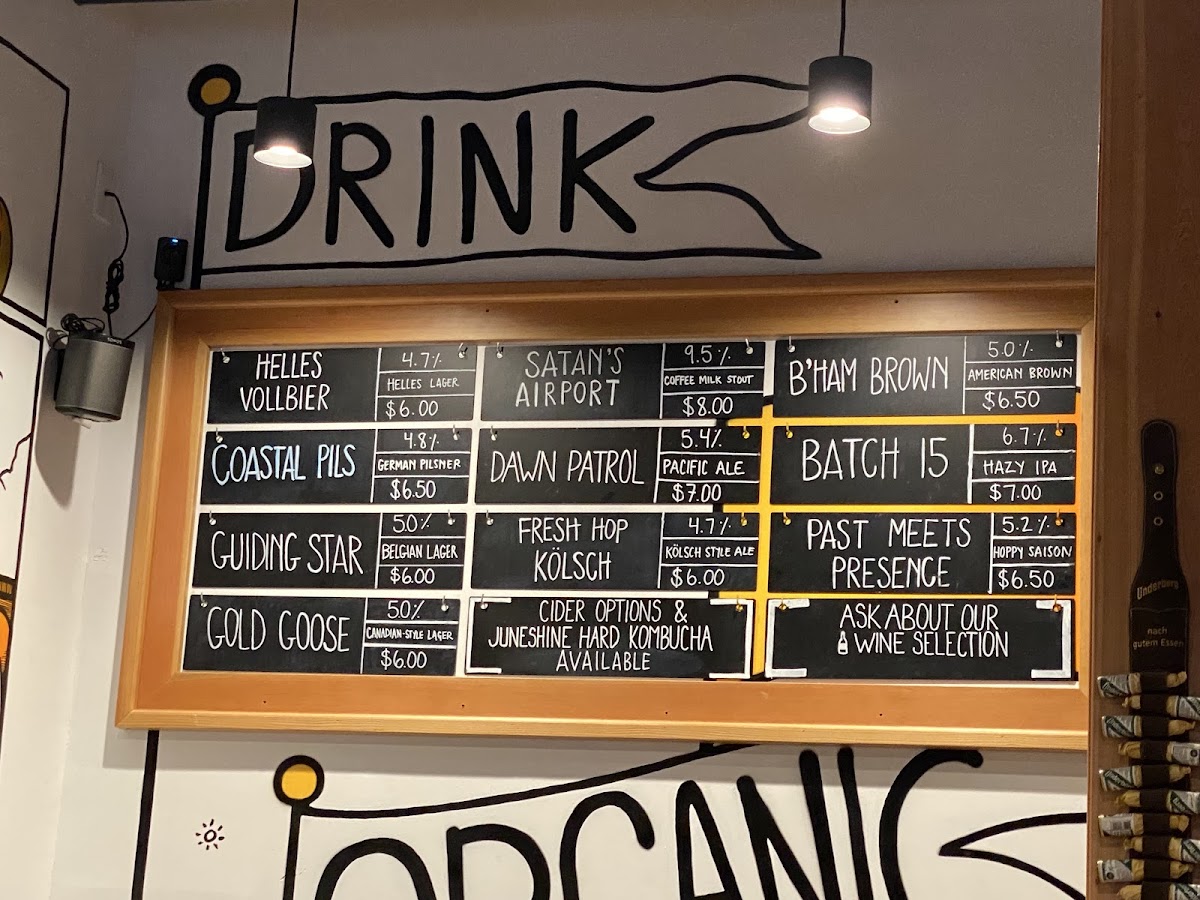 DRINK
HELLES
VOLLBIER
4.7%
HELLES LAGER
$6.00
SATAN'S
AIRPORT
9.5%
COFFEE MILK STOUT
$8.00
B'HAM BROWN
5.0%
AMERICAN BROWN
$6.50
COASTAL PILS
4.8%
GERMAN PILSNER
$6.50
DAWN PATROL
5.4%
PACIFIC ALE
$7.00
BATCH 15
6.7%
HAZY IPA
$7.00
GUIDING STAR
5.0%
BELGIAN LAGER
$6.00
FRESH HOP
KÖLSCH
4.7%
KÖLSCH STYLE ALE
$6.00
PAST MEETS
PRESENCE
5.2%
HOPPY SAISON
$6.50
GOLD GOOSE
5.0%
CANADIAN-STYLE LAGER
$6.00
CIDER OPTIONS &
JUNESHINE HARD KOMBUCHA
AVAILABLE
ASK ABOUT OUR
WINE SELECTION
ORGANIC
SONOS
Underberg
nach
gutem Essen